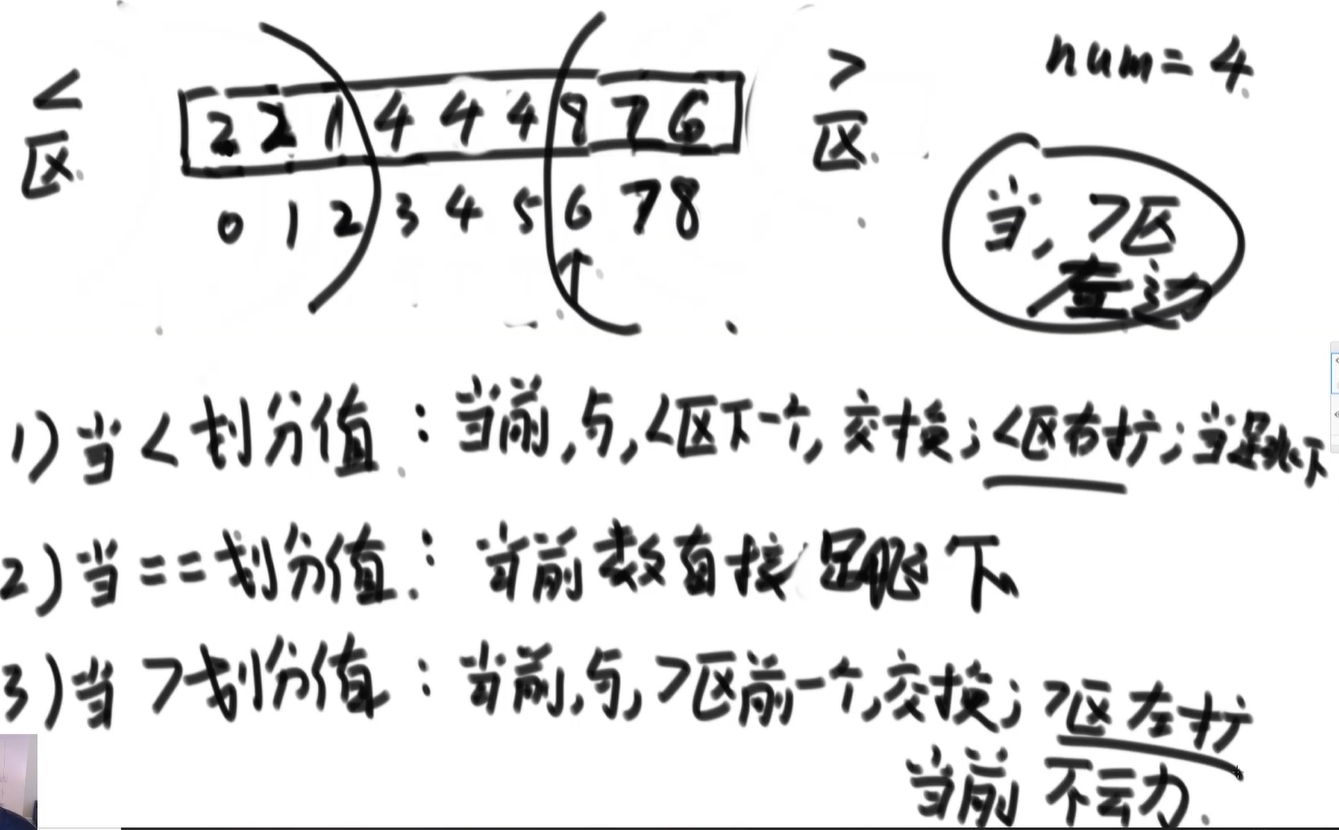 < 区
2 2 1 4 4 4 9 7 6
0 1 2 3 4 5 6 7 8
> 区
num = 4
当, >区
左边
1) 当 < 划分值 : 当前, 与, <区下一个, 交换 ; <区右扩 ; 当跳下
2) 当 == 划分值 : 当前数直接跳下
3) 当 > 划分值 : 当前, 与, >区前一个, 交换 ; >区左扩
当前 不动.